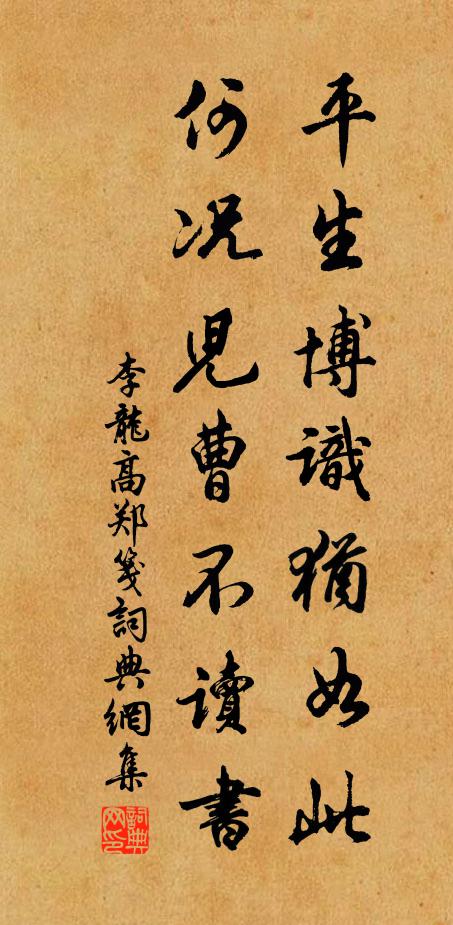 平生博識猶如此
何况児曹不讀書
李龍高郑笺詞典網集
詞典网印